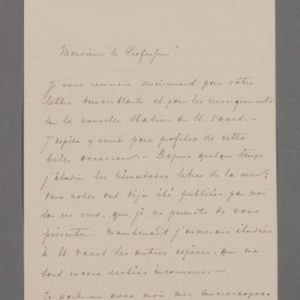 Monsieur le Professeur!
Je vous remercie sincèrement pour votre
lettre bienveillante et pour les renseignements
sur la nouvelle station de St. Vaast. –
J'espère y venir pour profiter de cette
belle occasion. – Depuis quelque temps
j'étudie les Nématodes libres de la mer;
deux notes ont déjà été publiées par moi
que je me permets de vous
présenter. Maintenant j'aimerais étudier
à St. Vaast les autres espèces, qui me
sont encore restées inconnues. –
Je porterai avec moi mon microscope,